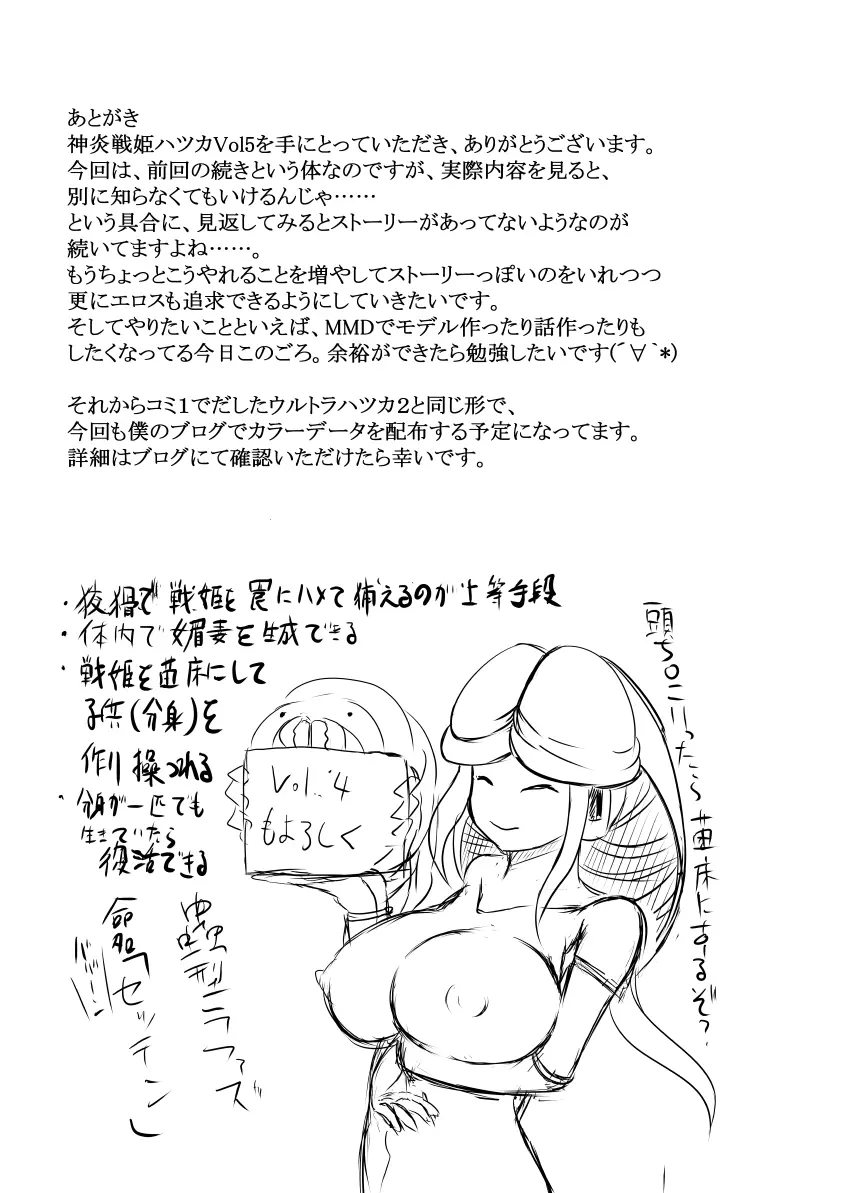 あとがき
神炎戦姫ハツカVol5を手にとっていただき、ありがとうございます。
今回は、前回の続きという体なのですが、実際内容を見ると、
別に知らなくてもいけるんじゃ……
という具合に、見返してみるとストーリーがあってないようなのが
続いてますよね……。
もうちょっとこうやれることを増やしてストーリーっぽいのをいれつつ
更にエロスも追求できるようにしていきたいです。
そしてやりたいことといえば、MMDでモデル作ったり話作ったりも
したくなってる今日このごろ。余裕ができたら勉強したいです(´∀｀*)
それからコミ１でだしたウルトラハツカ２と同じ形で、
今回も僕のブログでカラーデータを配布する予定になってます。
詳細はブログにて確認いただけたら幸いです。
・狡猾で戦姫を罠にハメて捕えるのが上等手段
・体内で媚毒を生成できる
・戦姫を苗床にして
子供(分身)を
作り操つれる
・分身が一匹でも
生きていたら
復活できる
頭ち○こいったら苗床にするぞ?
Vol.4
もよろしく
型ニラファズ
命名「セッチン」